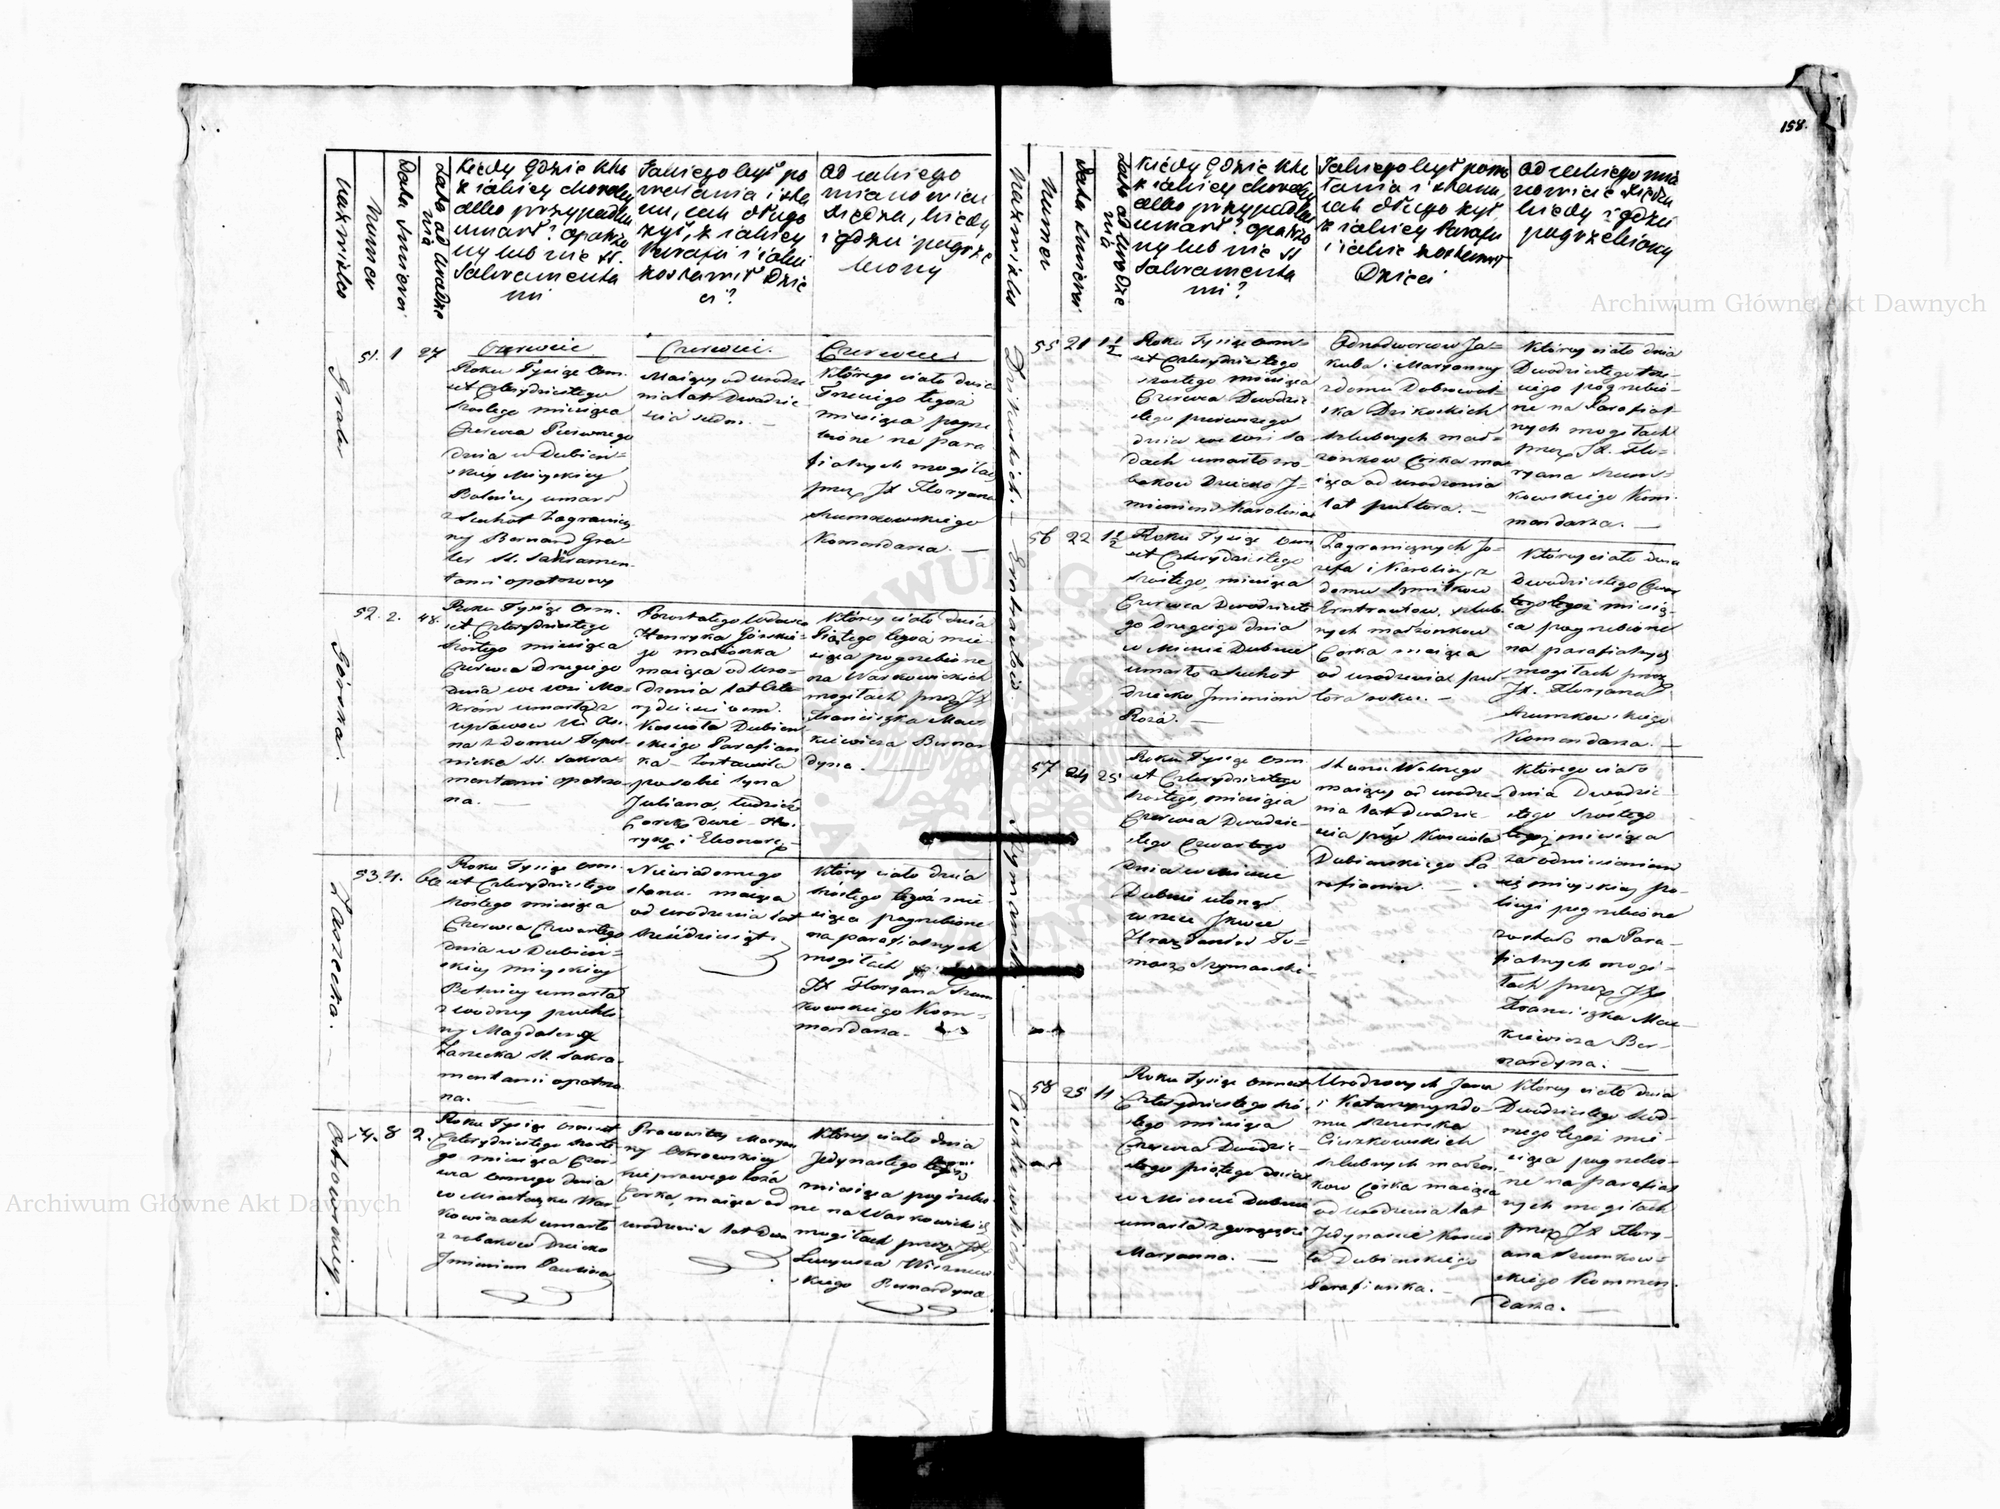 158.
Nazwisko
Numer
Data śmierci
Lata od urodzenia
Kiedy gdzie kto
z iakiey choroby
albo przypadku
umarł? opatrzo
ny lub nie SS.
Sakramenta
mi
Jakiego był po
wołania i sta
nu, iak długo
żył, z iakiey
Parafii i iakie
zostawił Dzie
ci?
Od iakiego
mianowicie
Xiędza, kiedy
i gdzie pogrze
biony
Grales
51. 1 27
Czerwiec
Roku Tysiąc Ośm-
set Czterdziestego
szóstego miesiąca
Czerwca Pierwszego
dnia w Dubień-
skiey Mieyskiey
Bolnicy umarł
z Suchot Zagranicz
ny Bernard Gra-
les SS. Sakramen-
tami opatrzony
Czerwiec.
Maiący od urodze
nia lat dwadzie
ścia siedm. —
Czerwiec.
Którego ciało dnia
Trzeciego tegoż
miesiąca pogrze
bione na para
fialnych mogiłach
przez JX Floryana
Szumkowskiego
Komendarza. —
Górska. —
52. 2. 48.
Roku Tysiąc Ośm-
set Czterdziestego
szóstego miesiąca
Czerwca Drugiego
dnia we wsi Mo-
krém umarła z
na z domu Topol-
nicka SS. Sakra-
mentami opatrzo-
na. —
Pozostałego wdowca
Henryka Górskie-
go małżonka
maiąca od uro-
dzenia lat czter
rydzieści ośm.
Kościoła Dubień
skiego Parafian
ka — Zostawiła
po sobie syna
Juliana, tudzież
Córek dwie
i Eleonorę
Którey ciało dnia
Piątego tegoż mie-
siąca pogrzebione
na Warkowickich
mogiłach przez JX
Franciszka Mac
kiewicza Bernar
dyna. —
Zarzecka. —
53. 4. 60
Roku Tysiąc Ośm-
set Czterdziestego
szóstego miesiąca
Czerwca Czwartego
dnia w Dubień-
skiey mieyskiey
Bolnicy umarła
z wodney puchli
ny Magdalena
Zarzecka SS. Sakra-
mentami opatrzo
na. —
Niewiadomego
stanu. maiąca
od urodzenia lat
sześćdziesiąt.
Którey ciało dnia
szóstego tegoż mie
siąca pogrzebione
na parafialnych
mogiłach przez
JX Floryana Szum
kowskiego Kom-
mendarza. —
Ostrowskiey.
54. 8 2.
Roku Tysiąc Ośmset
Czterdziestego szóste
go miesiąca Czer-
wca ósmego dnia
w Miasteczku War-
kowiczach umarło
z robaków Dziecko
Imieniem Paulina
Pracowitey Maryan
ny Ostrowskiey
nieprawego łoża
Córka, maiąca od
urodzenia lat dwa
Którey ciało dnia
Jedynastego tegoż
miesiąca pogrzebio
ne na Warkowickich
mogiłach przez JX
Lucyusza Wiszniew
skiego Bernardyna.
Nazwisko
Numer
Data śmierci
Lata od urodze
nia
Kiedy gdzie kto
z iakiey choroby
albo przypadku
umarł? opatrzo
ny lub nie SS
Sakramenta
mi?
Jakiego był powo
łania i stanu,
iak długo żył,
z iakiey Parafii
i iakie zostawił
Dzieci
Od iakiego mia
nowicie Xiędza
kiedy i gdzie
pogrzebiony
55 21 1½
Roku Tysiąc ośm-
set Czterdziestego
szóstego miesiąca
Czerwca Dwudzie
stego pierwszego
dnia we wsi Sa
dach umarło z ro-
baków Dziecko I-
mieniem Karolina
Odnodworców Ja-
kuba i Maryanny
z domu
szlubnych mał-
żonków Córka ma
iąca od urodzenia
lat półtora. —
Którey ciało dnia
Dwudziestego trze-
ciego pogrzebio-
ne na Parafial-
nych mogiłach
przez JX. Flo-
ryana Szum-
kowskiego Kom-
mendarza. —
Erntrautów.
56 22 1½
Roku Tysiąc Ośm
set Czterdziestego
szóstego, miesiąca
Czerwca Dwudzieste
go drugiego dnia
w Mieście Dubnie
umarło z suchot
dziecko Imieniem
Róża. —
Zagranicznych Jó-
zefa i Karoliny z
domu Szmitków
Erntrautów, szlub-
nych małżonków
Córka maiąca
od urodzenia pół
tora roku. —
Którey ciało dnia
Dwudziestego Czwar
tego tegoż miesią-
ca pogrzebione
na parafialnych
mogiłach przez
JX. Floryana
Szumkowskiego
Komendarza. —
Szymański. —
57 24 25
Roku Tysiąc Ośm
set Czterdziestego
szóstego, miesiąca
Czerwca Dwudzie-
stego Czwartego
Dnia w mieście
Dubnie utonął
w rzece Ikwie
To-
masz Szymański.
Stanu Wolnego
maiący od urodze-
nia lat dwadzie-
ścia pięć Kościoła
Dubieńskiego Pa
rafianin. —
Którego ciało
dnia Dwudzie-
stego Szóstego
tegoż miesiąca
za odniesieniem
się mieyskiey po-
licyi pogrzebione
zostało na Para-
fialnych mogi-
łach przez JX
Franciszka Mac-
kiewicza Ber-
nardyna. —
Cieszkowskich.
58 25 11
Roku Tysiąc ośmset
Czterdziestego szó-
stego miesiąca
Czerwca Dwudzie-
stego piątego dnia
w Mieście Dubnie
umarła z gorączki
Maryanna. —
Urodzonych Jana
i Katarzyny z do-
mu
Cieszkowskich
szlubnych małżon-
ków Córka maiąca
od urodzenia lat
Jedynaście Kościo
ła Dubieńskiego
Parafianka. —
Którey ciało dnia
Dwudziestego siód-
mego tegoż mie-
siąca pogrzebio-
ne na parafial
nych mogiłach
przez JX Flory-
ana Szumkow-
skiego Kommen-
darza. —
Archiwum Główne Akt Dawnych
Archiwum Główne Akt Dawnych